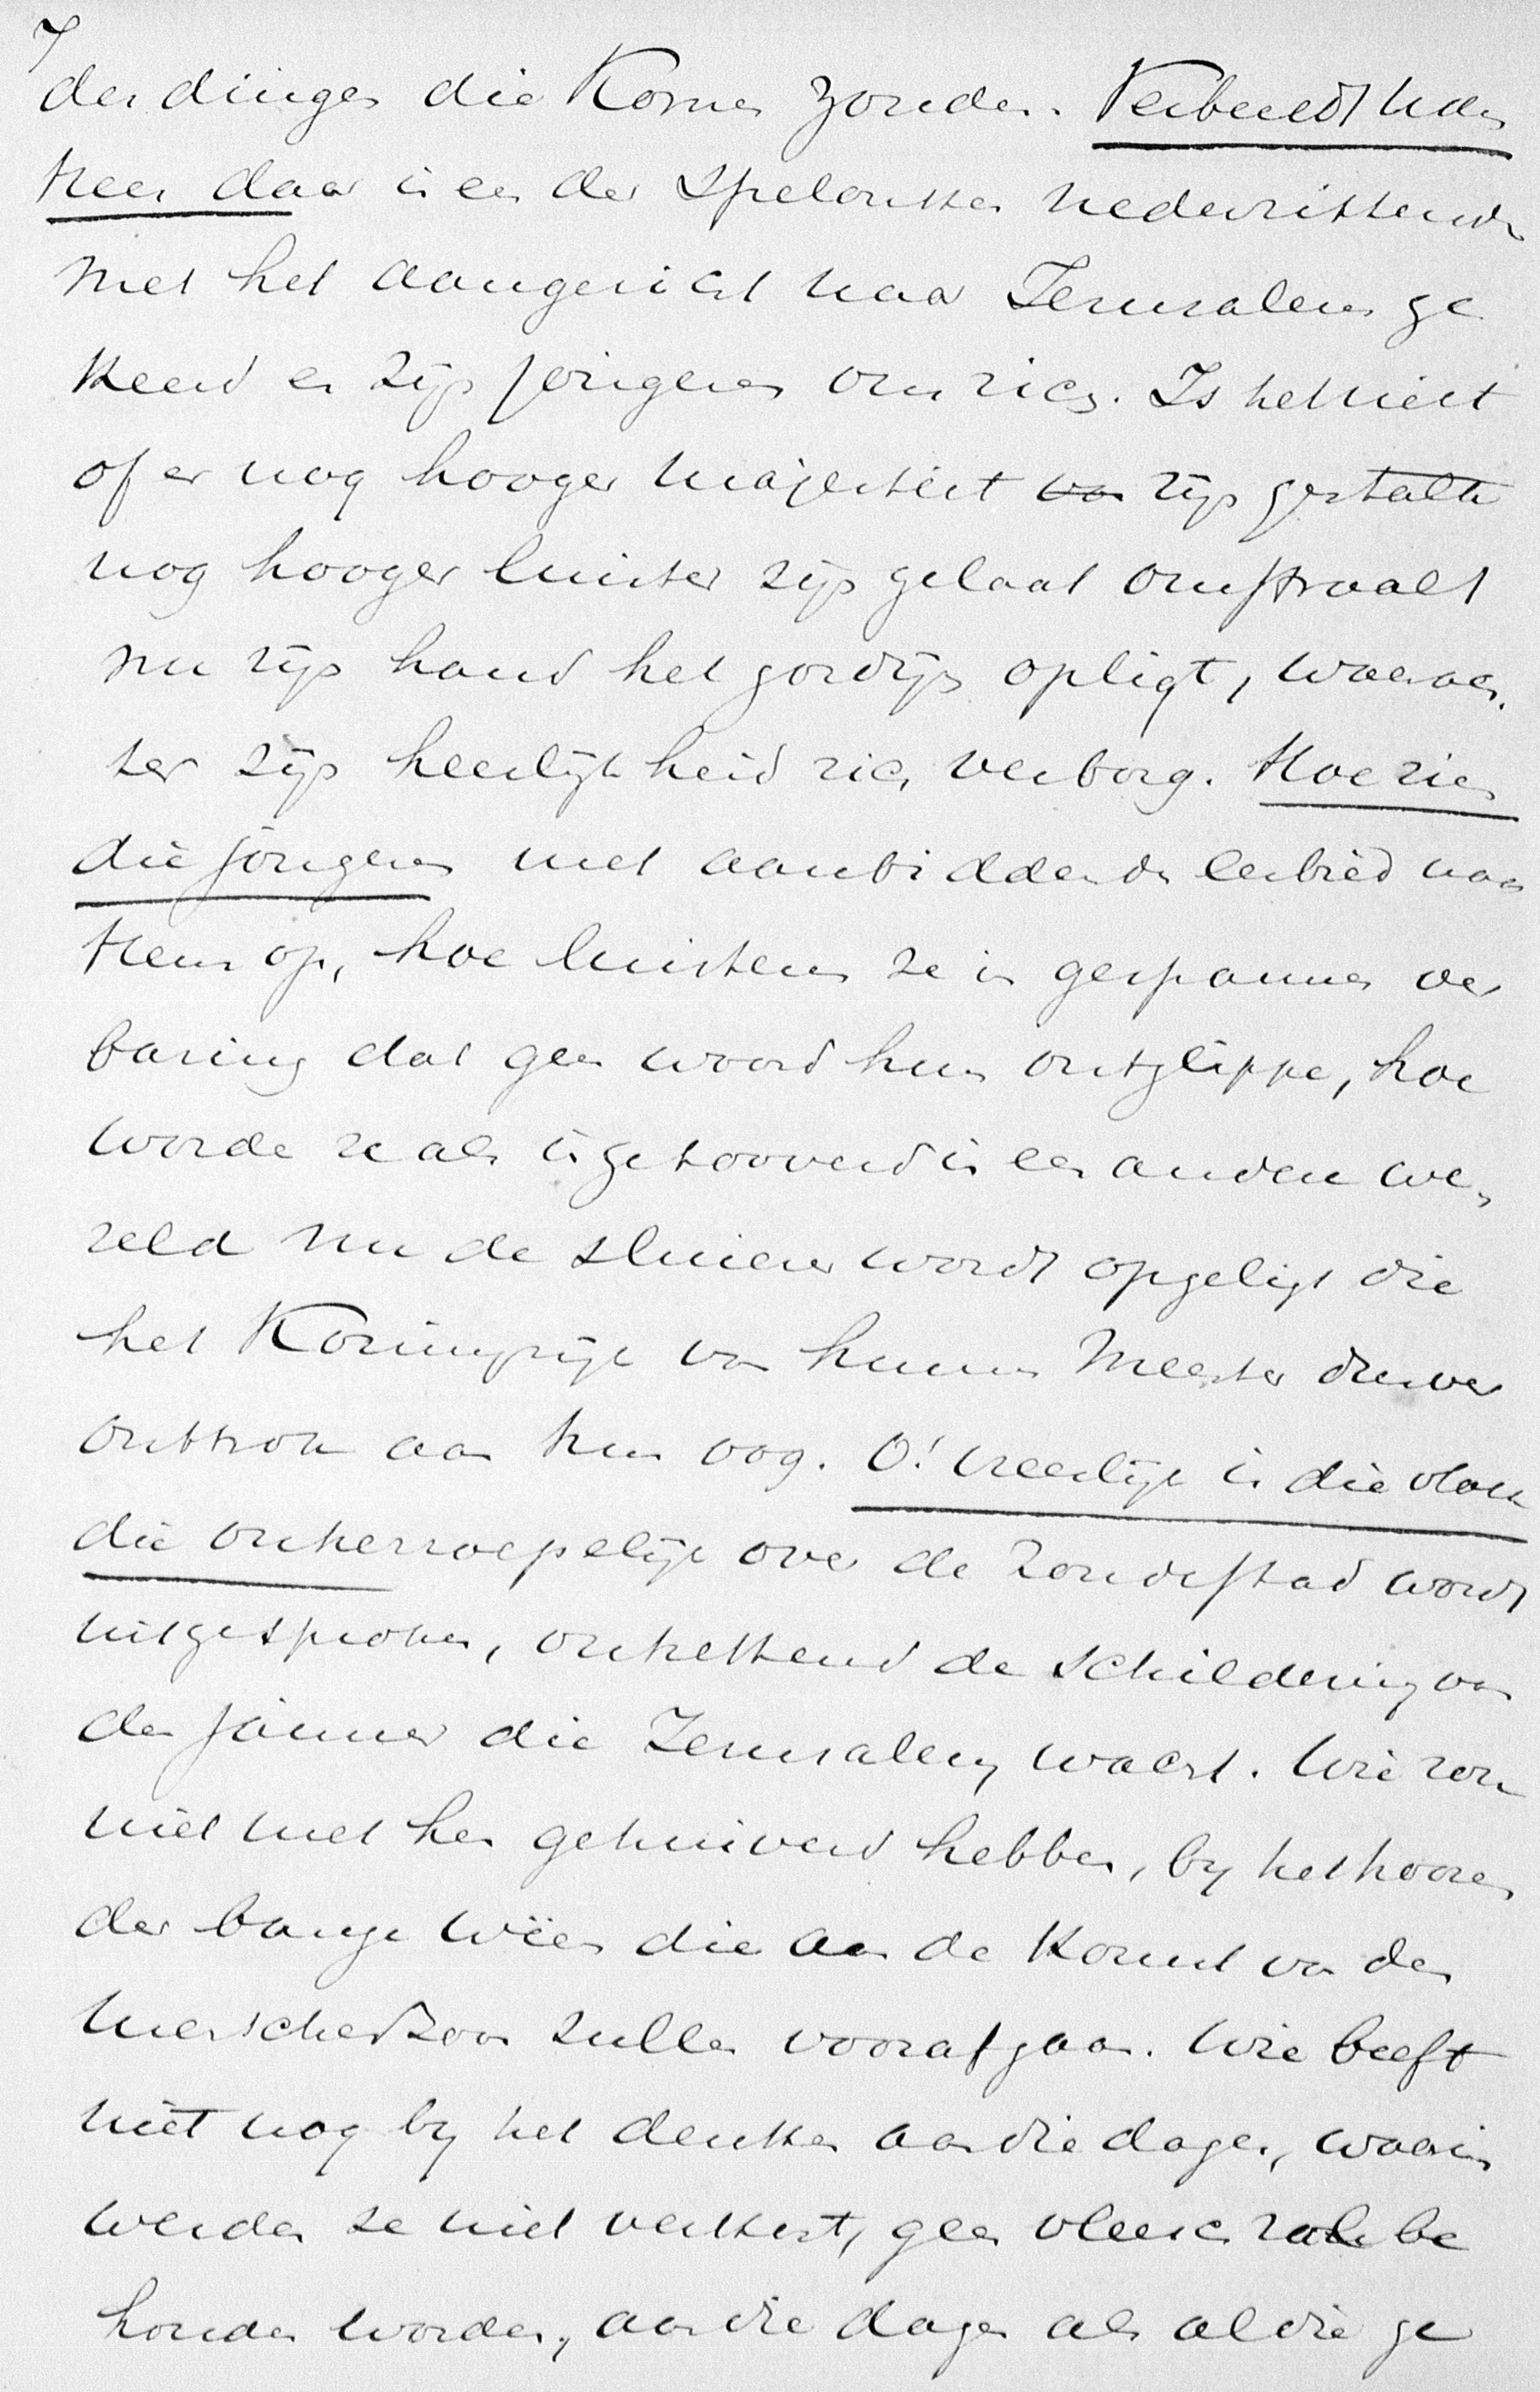 7
der dingen die komen zouden. Verbeeldt U den
Heer daar in een der spelonken nederzittende
met het aangezicht naar Jeruzalem ge
keerd en zijn jongeren om zich. Is het niet
of er nog hooger majesteit van zijn gestalte
nog hooger luister zijn gelaat omstraalt
nu zijn hand het gordijn opligt, waarach-
ter zijn heerlijkheid zich verborg. Hoe zien
die jongeren met aanbiddende eerbied naar
Hem op, hoe luisteren ze in gespannen ver
bazing dat geen woord hun ontglippe, hoe
worden ze als ingetooverd in een andere we-
reld nu de sluier wordt opgeligt die
het Koningrijk van hunnen Meester
onttrok aan hun oog. O! Vreeslijk is die vloek
die onherroepelijk over de zondestad wordt
uitgesproken, ontzettend de schildering van
den jammer die Jeruzalem wacht. Wie zou
niet met hen gehuiverd hebben, bij het hooren
der bange weeën die aan de komst van den
Menschenzoon zullen voorafgaan. Wie beeft
niet nog bij het denken aan die dagen, waarin
werden ze niet verkort, geen vleesch zou be
houden worden, aan die dagen als al die ge